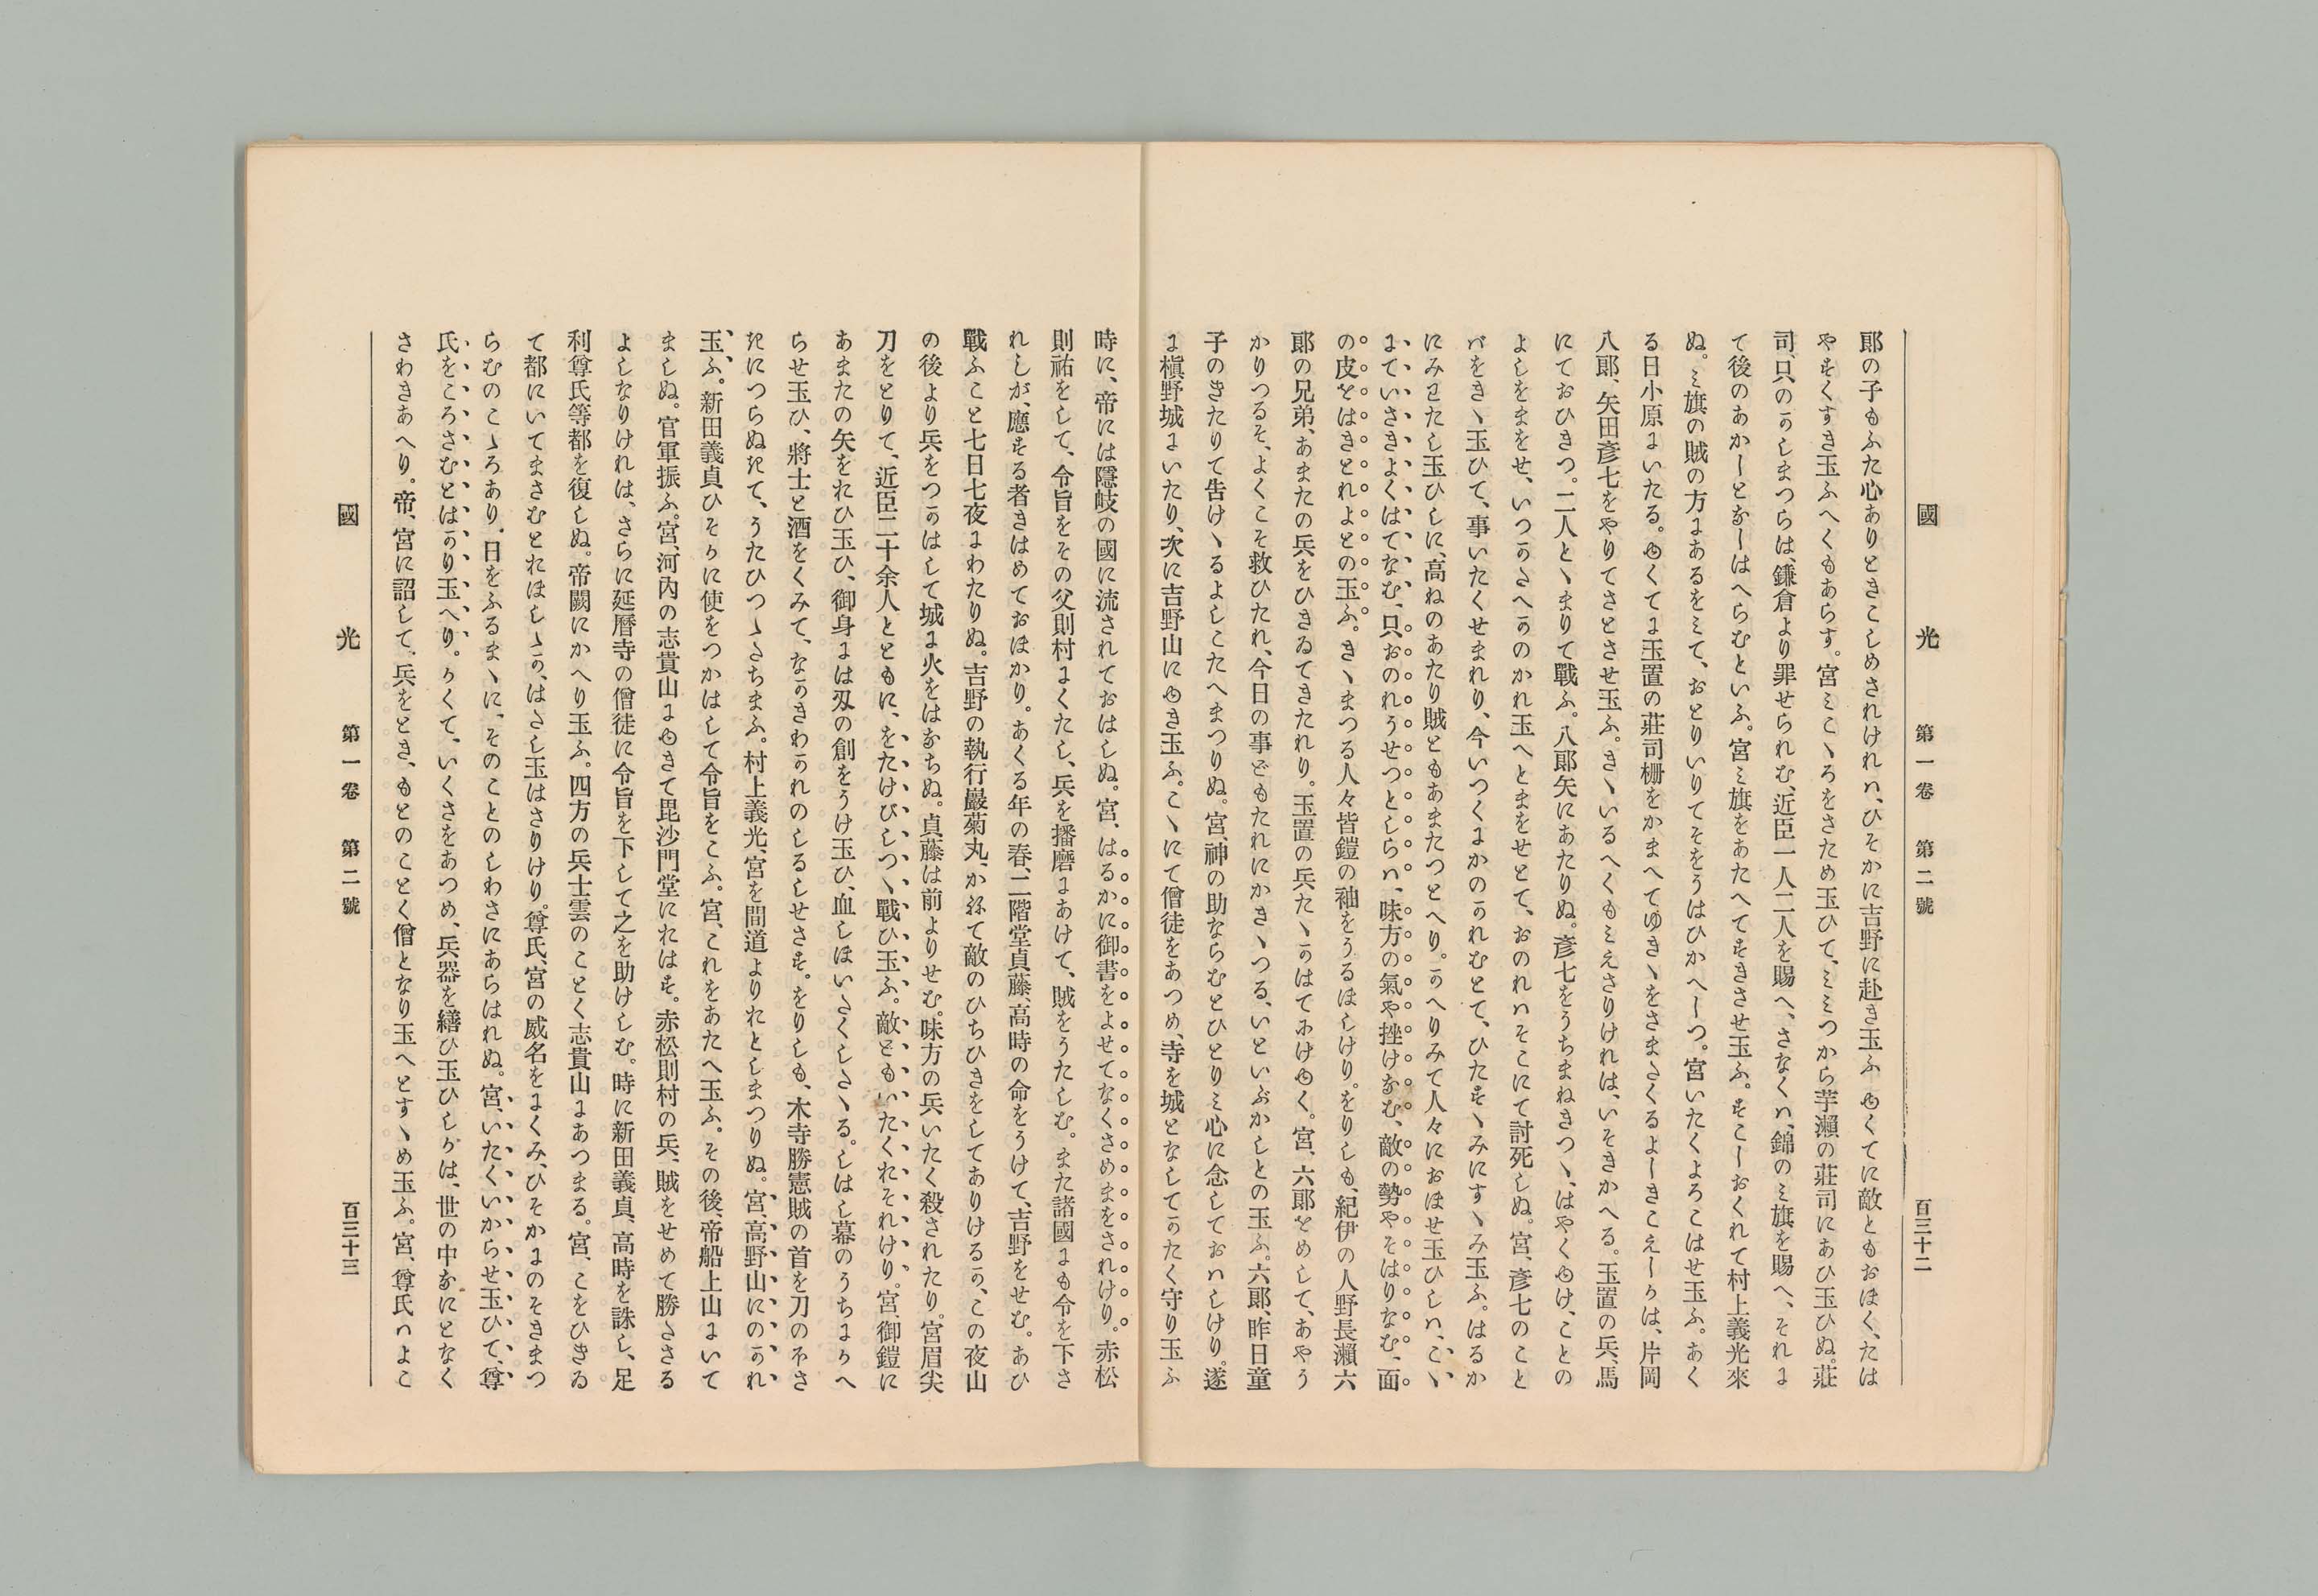 國光 第一卷 第二號 百三十二
郞の子もふた心ありときこしめされけれハ、ひそかに吉野に赴き玉ふ かくてに敵ともおほく、たは
やすくすき玉ふへくもあらす。宮ミこゝろをさため玉ひて、ミミつから芋瀨の莊司にあひ玉ひぬ。莊
司、只のかしまつらは、鎌倉より罪せられむ、近臣一人二人を賜へ、さなくハ、錦のミ旗を賜へ、それま
て後のあかしとなしはへらむといふ。宮ミ旗をあたへてすきさせ玉ふ。すこしおくれて村上義光來
ぬ。ミ旗の賊の方にあるをミて、おとりいりてそをうはひかへしつ。宮いたくよろこはせ玉ふ。あく
る日小原にいたる。かくてに玉置の莊司栅をかまへてゆきゝをさまさくるよしきこえしかは、片岡
八郞、矢田彥七をやりてさとさせ玉ふ。きゝいるへくもミえさりけれは、いそきかへる。玉置の兵、馬
にておひきつ。二人とゝまりて戰ふ。八郞矢にあたりぬ。彥七をうちまねきつゝ、はやくゆけ、ことの
よしをまをせ、いつかさへかのかれ玉へとまをせとて、おのれハそこにて討死しぬ。宮、彥七のこと
バをきゝ玉ひて、事いたくせまれり、今いつくにかのかれむとて、ひたすゝみにすゝみ玉ふ。はるか
にみわたし玉ひしに、高ねのあたり賊ともあまたつとへり。かへりみて人々におほせ玉ひしハ、こゝ
にていさきよくはてなむ、只おのれうせつとしらハ、味方の氣や挫けなむ、敵の勢やそはりなむ、面
の皮をはきとれよとの玉ふ。きゝまつる人々皆鎧の袖をうるほしけり。をりしも、紀伊の人野長瀨六
郞の兄弟、あまたの兵をひきゐてきたれり。玉置の兵たゝかはてにけゆく。宮、六郞をめして、あやう
かりつるそ、よくこそ救ひたれ、今日の事どもたれにかきゝつる、いといぶかしとの玉ふ。六郞、昨日童
子のきたりて告けゝるよしこたへまつりぬ。宮、神の助ならむとひとりミ心に念しておハしけり。遂
に槇野城にいたり、次に吉野山にゆき玉ふ。こゝにて僧徒をあつめ、寺を城となしてかたく守り玉ふ
時に、帝には隱岐の國に流されておはしぬ。宮、はるかに御書をよせてなくさめまをされけり。赤松
則祐をして、令旨をその父則村にくたし、兵を播磨にあけて、賊をうたしむ。また諸國にも令を下さ
れしが、應する者きはめておほかり。あくる年の春、二階堂貞藤、高時の命をうけて、吉野をせむ。あひ
戰ふこと七日七夜にわたりぬ。吉野の執行巖菊丸、かねて敵のひちひきをしてありけるか、この夜山
の後より兵をつかはして城に火をはなちぬ。貞藤は前よりせむ。味方の兵いたく殺されたり。宮眉尖
刀をとりて、近臣二十余人とともに、をたけびしつゝ戰ひ玉ふ。敵どもいたくおそれけり。宮、御鎧に
あまたの矢をおひ玉ひ、御身には刄の創をうけ玉ひ、血しほいさくしさゝる。しはし幕のうちにかへ
らせ玉ひ、將士と酒をくみて、なかきわかれのしるしせさす。をりしも、木寺勝憲賊の首を刀のほさ
きにつらぬきて、うたひつゝさちまふ。村上義光、宮を間道よりおとしまつりぬ。宮、高野山にのかれ
玉ふ。新田義貞ひそかに使をつかはして令旨をこふ。宮、これをあたへ玉ふ。その後、帝船上山にいて
ましぬ。官軍振ふ。宮、河內の志貴山にゆきて毘沙門堂におはす。赤松則村の兵、賊をせめて勝さる
よしなりけれは、さらに延曆寺の僧徒に令旨を下して之を助けしむ。時に新田義貞、高時を誅し、足
利尊氏等都を復しぬ。帝闕にかへり玉ふ。四方の兵士雲のことく志貴山にあつまる。宮、こをひきゐ
て都にいてまさむとおほしゝか、はさし玉はさりけり。尊氏、宮の威名をにくみ、ひそかにのそきまつ
らむのこゝろあり。日をふるまゝに、そのことのしわさにあらはれぬ。宮、いたくいからせ玉ひて、尊
氏をころさむとはかり玉へり。かくて、いくさをあつめ、兵器を繕ひ玉ひしかは、世の中なにとなく
さわきあへり。帝、宮に詔して、兵をとき、もとのことく僧となり玉へとすゝめ玉ふ。宮、尊氏ハよこ
國光 第一卷 第二號 百三十三